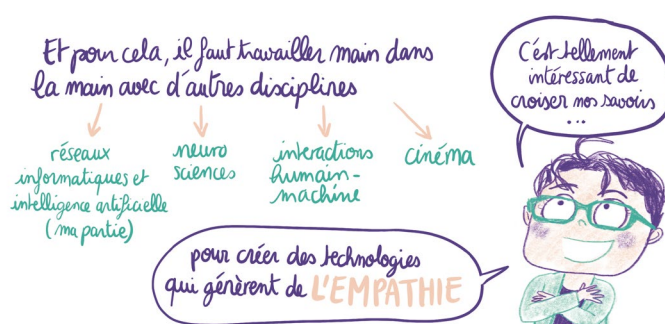 Et pour cela, il faut travailler main dans
la main avec d'autres disciplines
réseaux
informatiques et
intelligence artificielle
(ma partie)
neuro
sciences
interactions
humain-
machine
cinéma
C'est tellement
intéressant de
croiser nos savoirs
...
pour créer des technologies
qui génèrent de L'EMPATHIE